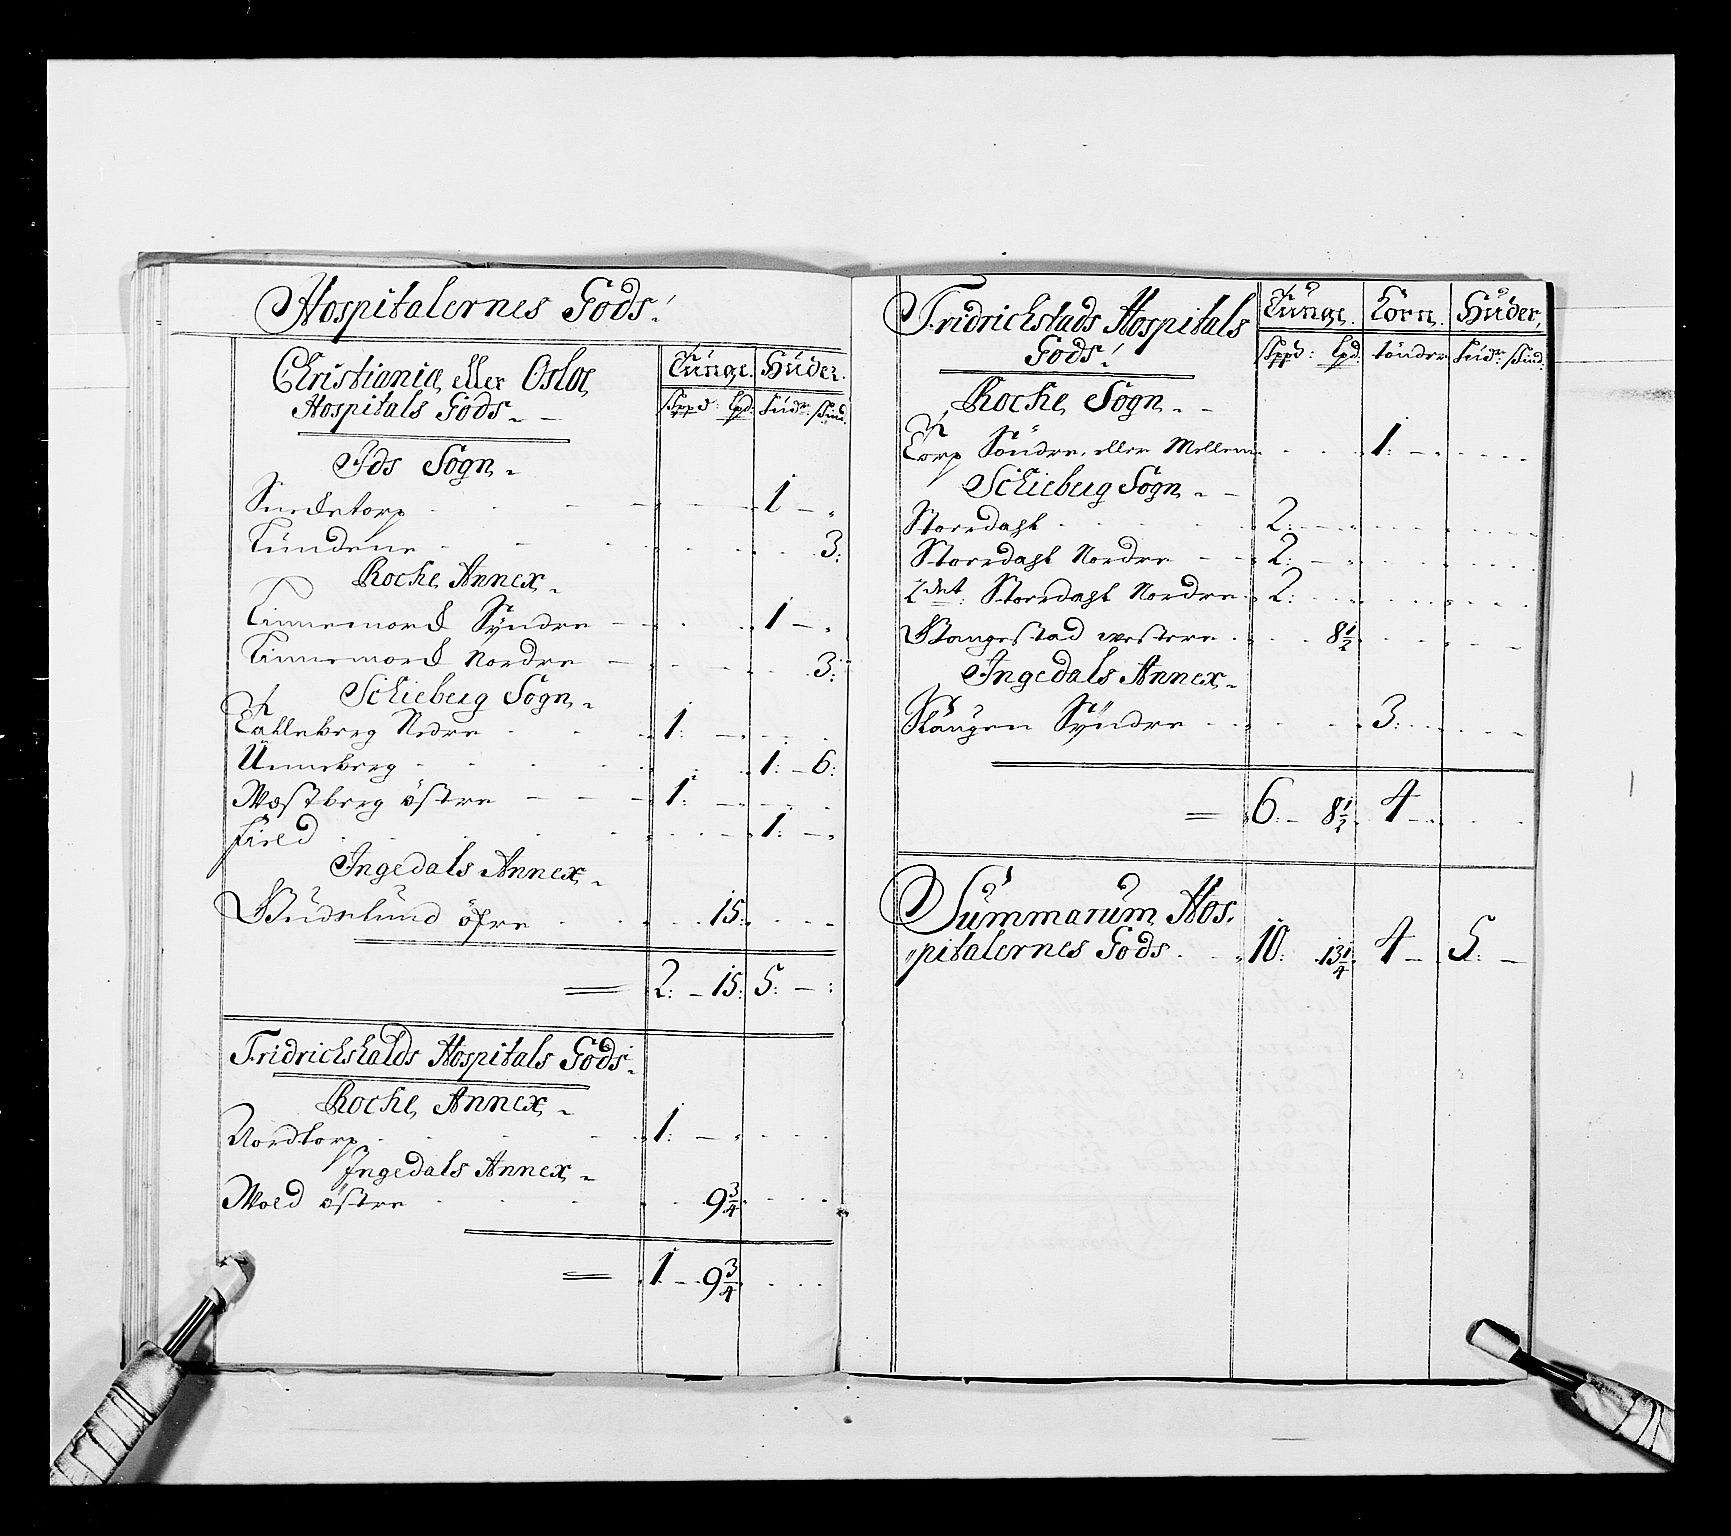 Hospitalernes Gods.
Christiania eller Osloe
Hospitals Gods.
Tunge. Huder.
Skpd: Lpd. Hud: Skind.
Ids Sogn.
1 –
3:
Rocke Annex.
Tinnemord Syndre – 1 –
Tinnemord Nordre – 3:
Schieberg Sogn.
Nedre 1: –
Unneberg 1: – 6:
Westberg östre – – – 1: –
1: –
Ingedals Annex.
öfre 15:
= 2: – 15: 5: – :
Fridrichshalds Hospitals Gods.
Rocke Annex.
Nordtorp 1: –
Ingedals Annex.
Moed östre 9 3/4
= 1 – 9 3/4
Fridrichstads Hospitals
Gods.
Tunge. Korn. Huder.
Skpd: Lpd. tönder Hud: Skind:
Rocke Sogn. –
Torp Söndre, eller Mellem 1: –
Schieberg Sogn. –
Storedahl 2: –
Storedahl Nordre – – 2: –
2det: Storedahl Nordre 2:
Stangestad westere 8 1/2
Ingedals Annex.
Slangen Syndre 3:
= 6: – 8 1/2 4 –
Summarum Hos-
pitalernes Gods 10: 13 1/4 4 – 5: –